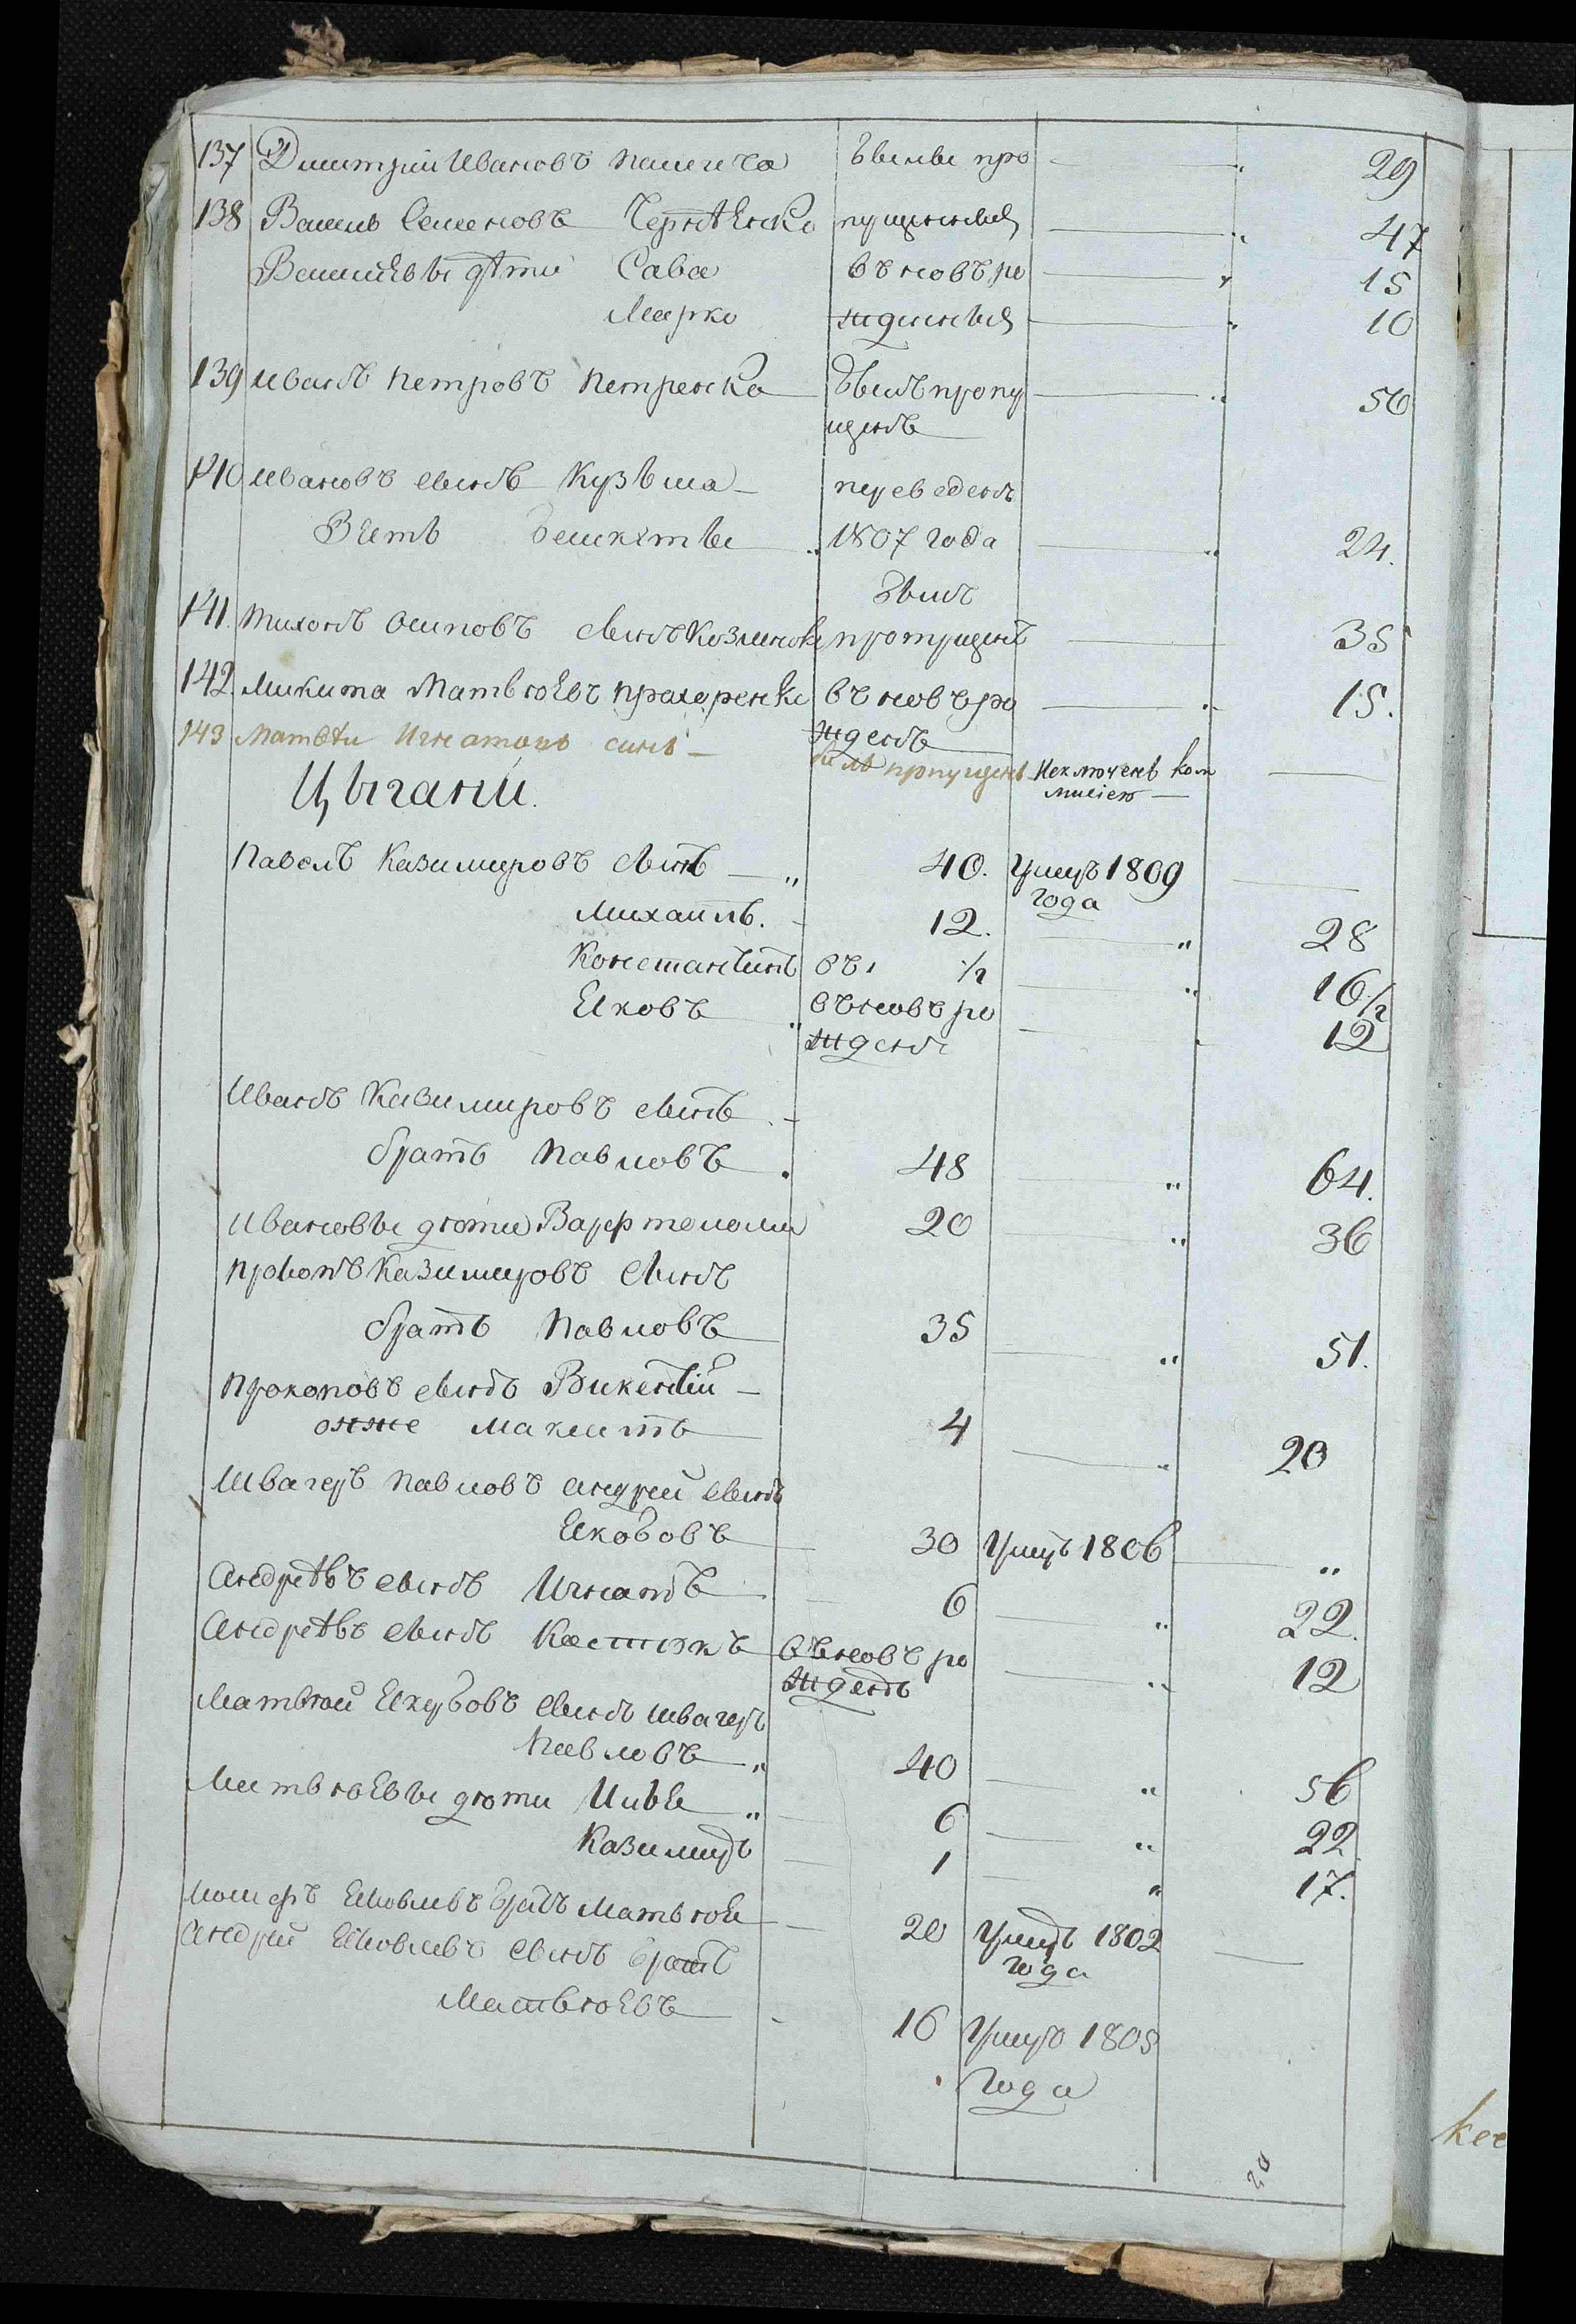 137 Дмитрій Ивановъ Пашегста были про — „ 29
138 Василь Семеновъ Чернѣенко пущенныя — „ 47
Василіевы дѣти Сава въ новъ ро — „ 15
Марко жденныя — „ 10
139 Иванъ Петровъ Петренко былъ пропу — „ 50
щенъ
140 Ивановъ сынъ Кузьма — переведенъ
Зять „ 1807 года — „ 24.
былъ
141. Тихонъ Осиповъ сынъ Козминовъ пропущенъ — 35
142. Микита Матвюевъ Прахоренко въ новъ ро — „ 15.
жденъ
143 Матвѣи Игнатовъ синъ — билъ пропущенъ Изключенъ ком —
мисіею —
Цыгани.
Павелъ Казимировъ сынъ — „ 40. Умеръ 1809 —
года
Михаилъ. 12. — „ 28
Константинъ въ 1/2 — „ 16 1/2
Яковъ „ въ новъ ро — 12
жденъ
Иванъ Казимировъ сынъ —
братъ Павловъ . 48 — „ 64.
Ивановы дюти Варфтоломи 20 — „ 36
Прокопъ Казимировъ сынъ
братъ Павловъ 35 — „ 51.
Прокоповъ сынъ Викентій —
онже Макситъ 4 — „ 20
Швагеръ Павловъ Андрей сынъ
Якобовъ 30 Умеръ 1806 — „
Андреѣвъ сынъ Игнатъ 6 — „ 22.
Андреѣвъ сынъ Костюкъ въ новъ ро — „ 12
жденъ
Матвюй Якубовъ сынъ швагеръ
Павловъ „ 40 — „ 56
Матвюевы дюти Илья „ 6 — „ 22
Казимиръ 1 — „ 17.
Іосифъ Яковлевъ братъ Матвюя — 20 Умеръ 1802 —
года
Андрей Яковлевъ сынъ братъ
Матвюевъ 16 Умеръ 1805
года
20